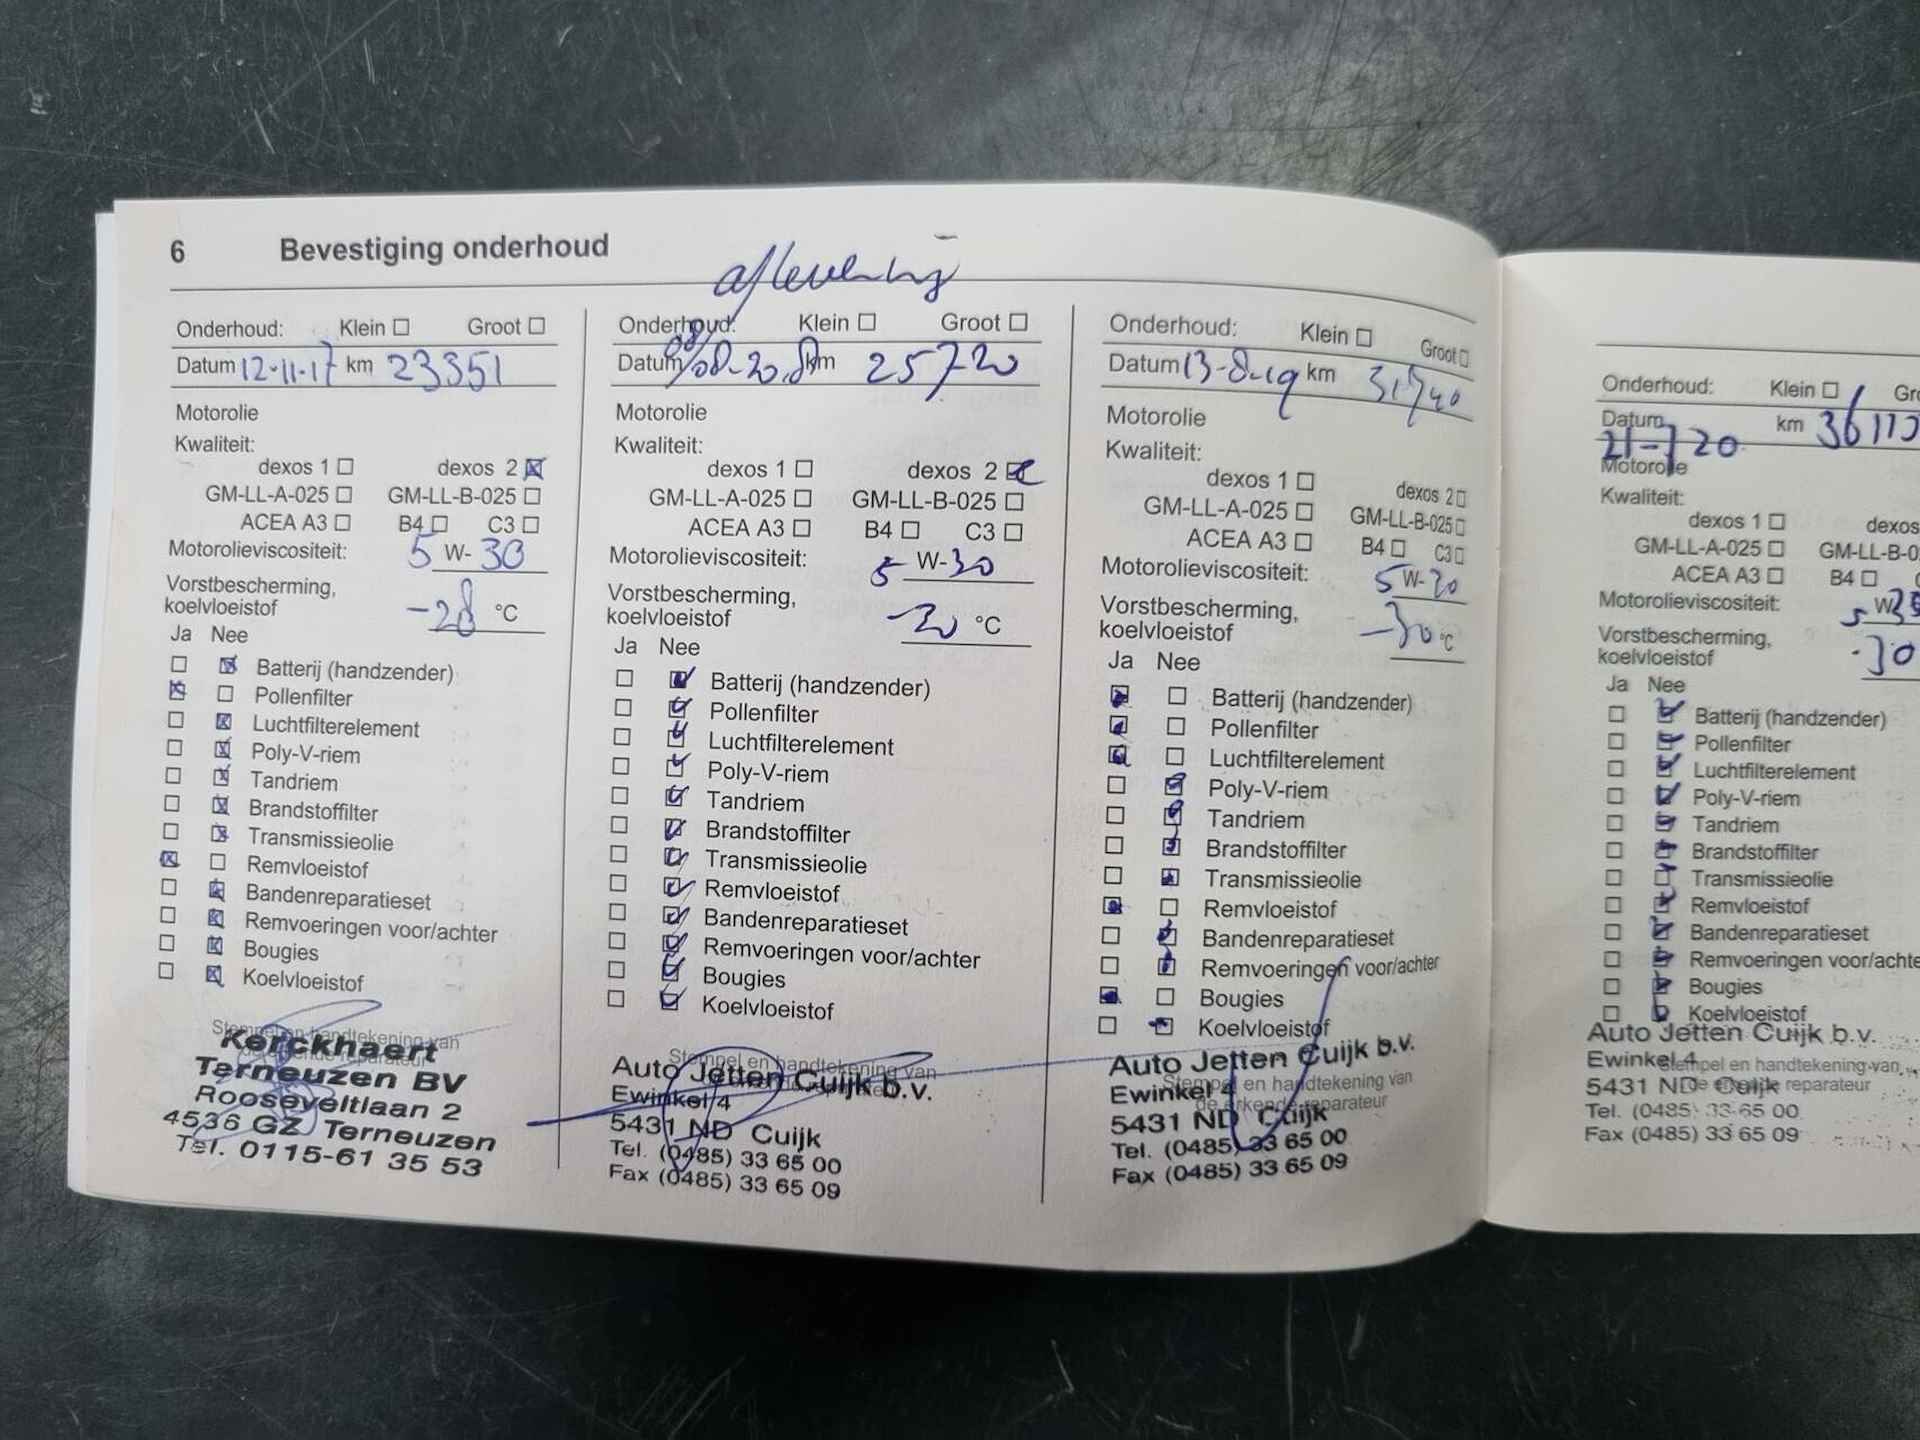 6 Bevestiging onderhoud
aflevering
Onderhoud: Klein ☐ Groot ☐
Datum 12-11-17 km 23351
Motorolie
Kwaliteit:
dexos 1 ☐ dexos 2 ☒
GM-LL-A-025 ☐ GM-LL-B-025 ☐
ACEA A3 ☐ B4 ☐ C3 ☐
Motorolieviscositeit: 5 W- 30
Vorstbescherming,
koelvloeistof -28 °C
Ja Nee
☐ ☒ Batterij (handzender)
☒ ☐ Pollenfilter
☐ ☒ Luchtfilterelement
☐ ☒ Poly-V-riem
☐ ☒ Tandriem
☐ ☒ Brandstoffilter
☐ ☒ Transmissieolie
☒ ☐ Remvloeistof
☐ ☒ Bandenreparatieset
☐ ☒ Remvoeringen voor/achter
☐ ☒ Bougies
☐ ☒ Koelvloeistof
Stempel en handtekening van
Kerckhaert
Terneuzen BV
Rooseveltlaan 2
4536 GZ Terneuzen
Tel. 0115-61 35 53
Onderhoud: Klein ☐ Groot ☐
Datum 08/08-2018 km 25720
Motorolie
Kwaliteit:
dexos 1 ☐ dexos 2 ☒
GM-LL-A-025 ☐ GM-LL-B-025 ☐
ACEA A3 ☐ B4 ☐ C3 ☐
Motorolieviscositeit: 5 W-30
Vorstbescherming,
koelvloeistof -30 °C
Ja Nee
☐ ☑ Batterij (handzender)
☐ ☑ Pollenfilter
☐ ☑ Luchtfilterelement
☐ ☑ Poly-V-riem
☐ ☑ Tandriem
☐ ☑ Brandstoffilter
☐ ☑ Transmissieolie
☐ ☑ Remvloeistof
☐ ☑ Bandenreparatieset
☐ ☑ Remvoeringen voor/achter
☐ ☑ Bougies
☐ ☑ Koelvloeistof
Stempel en handtekening van
Auto Jetten Cuijk b.v.
Ewinkel 4
5431 ND Cuijk
Tel. (0485) 33 65 00
Fax (0485) 33 65 09
Onderhoud: Klein ☐ Groot ☐
Datum 13-8-19 km 31740
Motorolie
Kwaliteit:
dexos 1 ☐ dexos 2 ☐
GM-LL-A-025 ☐ GM-LL-B-025 ☐
ACEA A3 ☐ B4 ☐ C3 ☐
Motorolieviscositeit: 5 W-30
Vorstbescherming,
koelvloeistof -30 °C
Ja Nee
☑ ☐ Batterij (handzender)
☑ ☐ Pollenfilter
☑ ☐ Luchtfilterelement
☐ ☑ Poly-V-riem
☐ ☑ Tandriem
☐ ☑ Brandstoffilter
☐ ☑ Transmissieolie
☑ ☐ Remvloeistof
☐ ☑ Bandenreparatieset
☐ ☑ Remvoeringen voor/achter
☑ ☐ Bougies
☐ ☑ Koelvloeistof
Auto Jetten Cuijk b.v.
Stempel en handtekening van
Ewinkel 4
de erkende reparateur
5431 ND Cuijk
Tel. (0485) 33 65 00
Fax (0485) 33 65 09
Onderhoud: Klein ☐
Datum 21-7 20 km
Motorolie
Kwaliteit:
dexos 1 ☐ dexos
GM-LL-A-025 ☐
ACEA A3 ☐ B4 ☐
Motorolieviscositeit: 5 W
Vorstbescherming,
koelvloeistof -30
Ja Nee
☐ ☑ Batterij (handzender)
☐ ☑ Pollenfilter
☐ ☑ Luchtfilterelement
☐ ☑ Poly-V-riem
☐ ☑ Tandriem
☐ ☑ Brandstoffilter
☐ ☑ Transmissieolie
☐ ☑ Remvloeistof
☐ ☑ Bandenreparatieset
☐ ☑ Remvoeringen
☐ ☑ Bougies
☐ ☑ Koelvloeistof
Auto Jetten Cuijk b.v.
Ewinkel 4
Stempel en handtekening van
5431 ND Cuijk
de erkende reparateur
Tel. (0485) 33 65 00
Fax (0485) 33 65 09